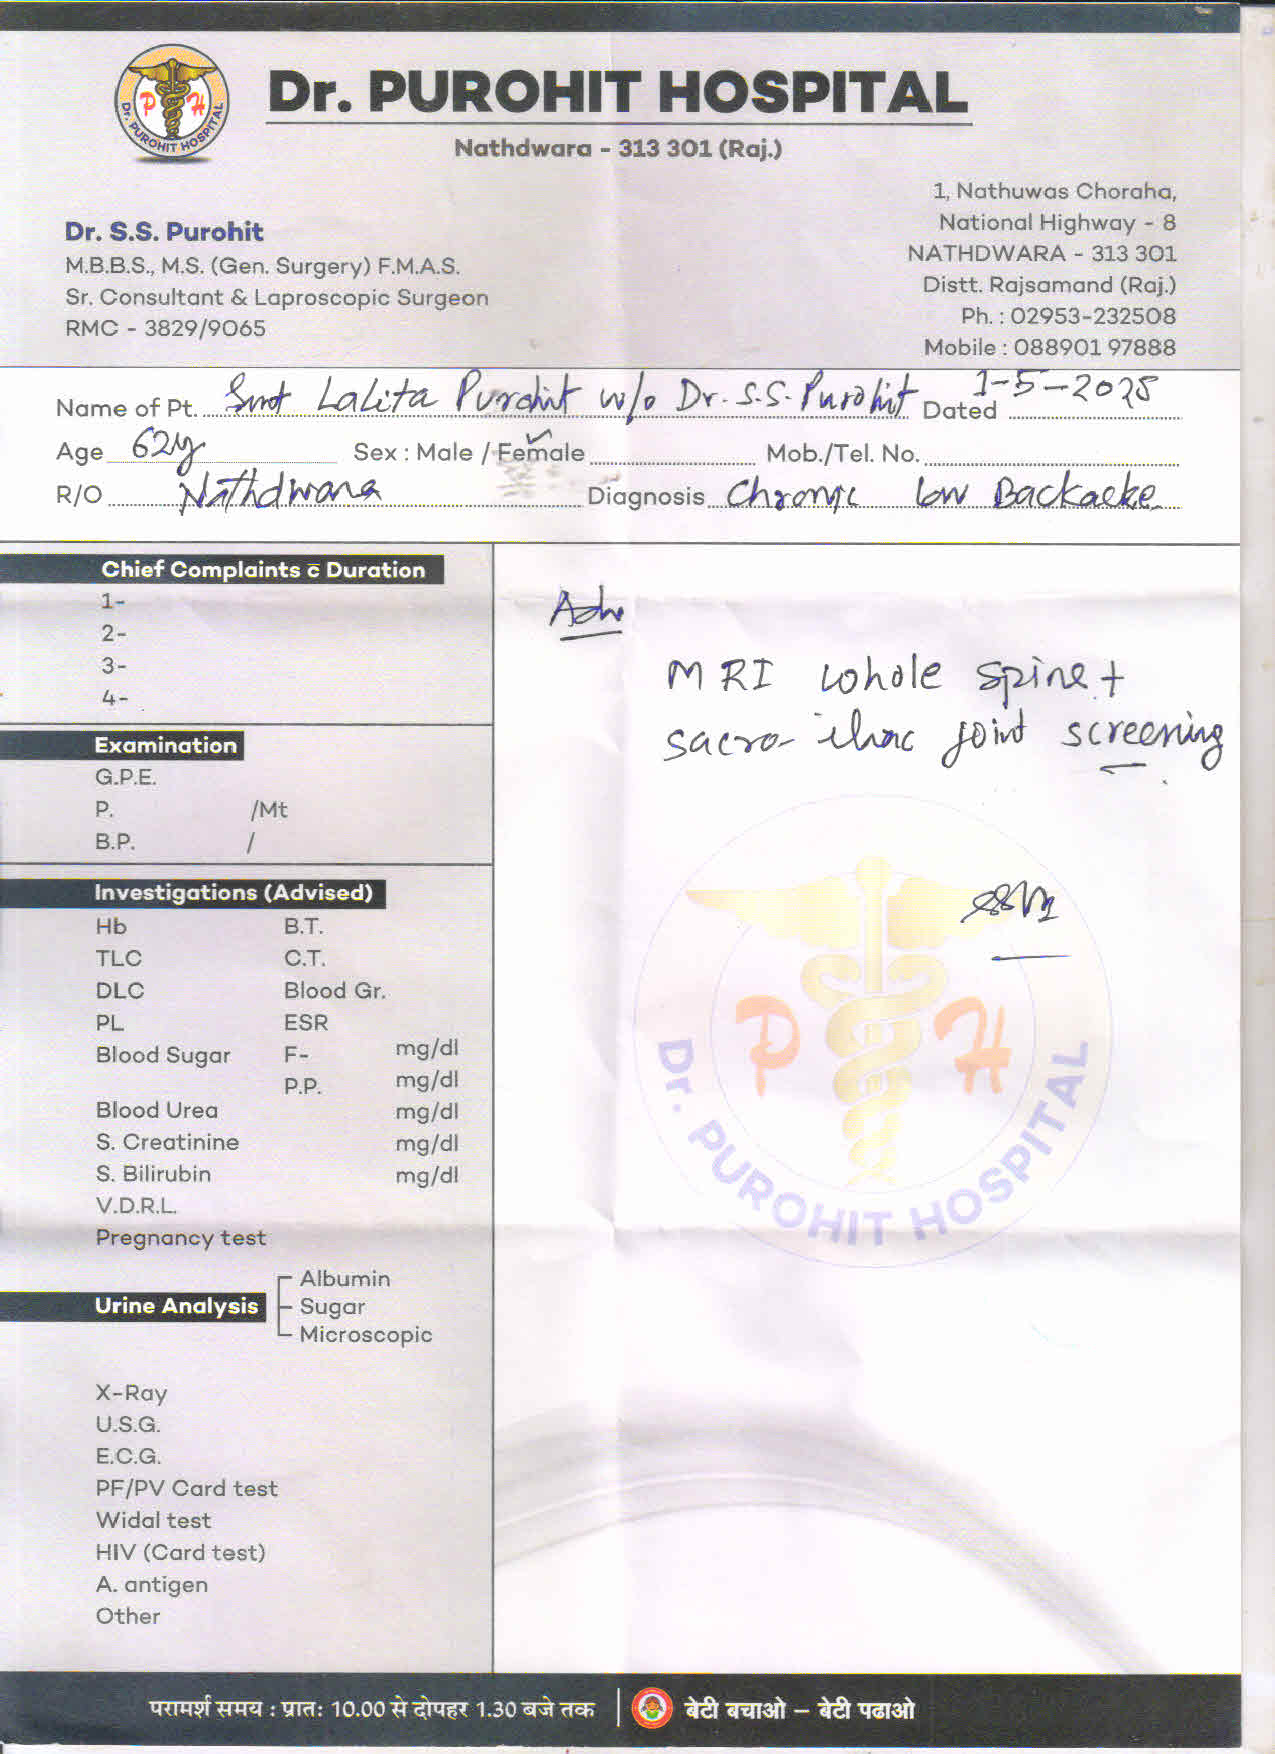 Dr. PUROHIT HOSPITAL
Nathdwara - 313 301 (Raj.)
P H
Dr. PUROHIT HOSPITAL
Dr. S.S. Purohit
M.B.B.S., M.S. (Gen. Surgery) F.M.A.S.
Sr. Consultant & Laproscopic Surgeon
RMC - 3829/9065
1, Nathuwas Choraha,
National Highway - 8
NATHDWARA - 313 301
Distt. Rajsamand (Raj.)
Ph. : 02953-232508
Mobile : 088901 97888
Name of Pt. Smt Lalita Purohit w/o Dr. S.S. Purohit Dated 1-5-2025
Age 62y Sex : Male / Female ✓ Mob./Tel. No.
R/O Nathdwara Diagnosis Chronic low Backache
Chief Complaints c̄ Duration
1-
2-
3-
4-
Examination
G.P.E.
P. /Mt
B.P. /
Investigations (Advised)
Hb B.T.
TLC C.T.
DLC Blood Gr.
PL ESR
Blood Sugar F- mg/dl
P.P. mg/dl
Blood Urea mg/dl
S. Creatinine mg/dl
S. Bilirubin mg/dl
V.D.R.L.
Pregnancy test
Urine Analysis
Albumin
Sugar
Microscopic
X-Ray
U.S.G.
E.C.G.
PF/PV Card test
Widal test
HIV (Card test)
A. antigen
Other
Adv
MRI whole spine +
sacro-iliac joint screening
P H
Dr. PUROHIT HOSPITAL
परामर्श समय : प्रातः 10.00 से दोपहर 1.30 बजे तक
बेटी बचाओ – बेटी पढाओ